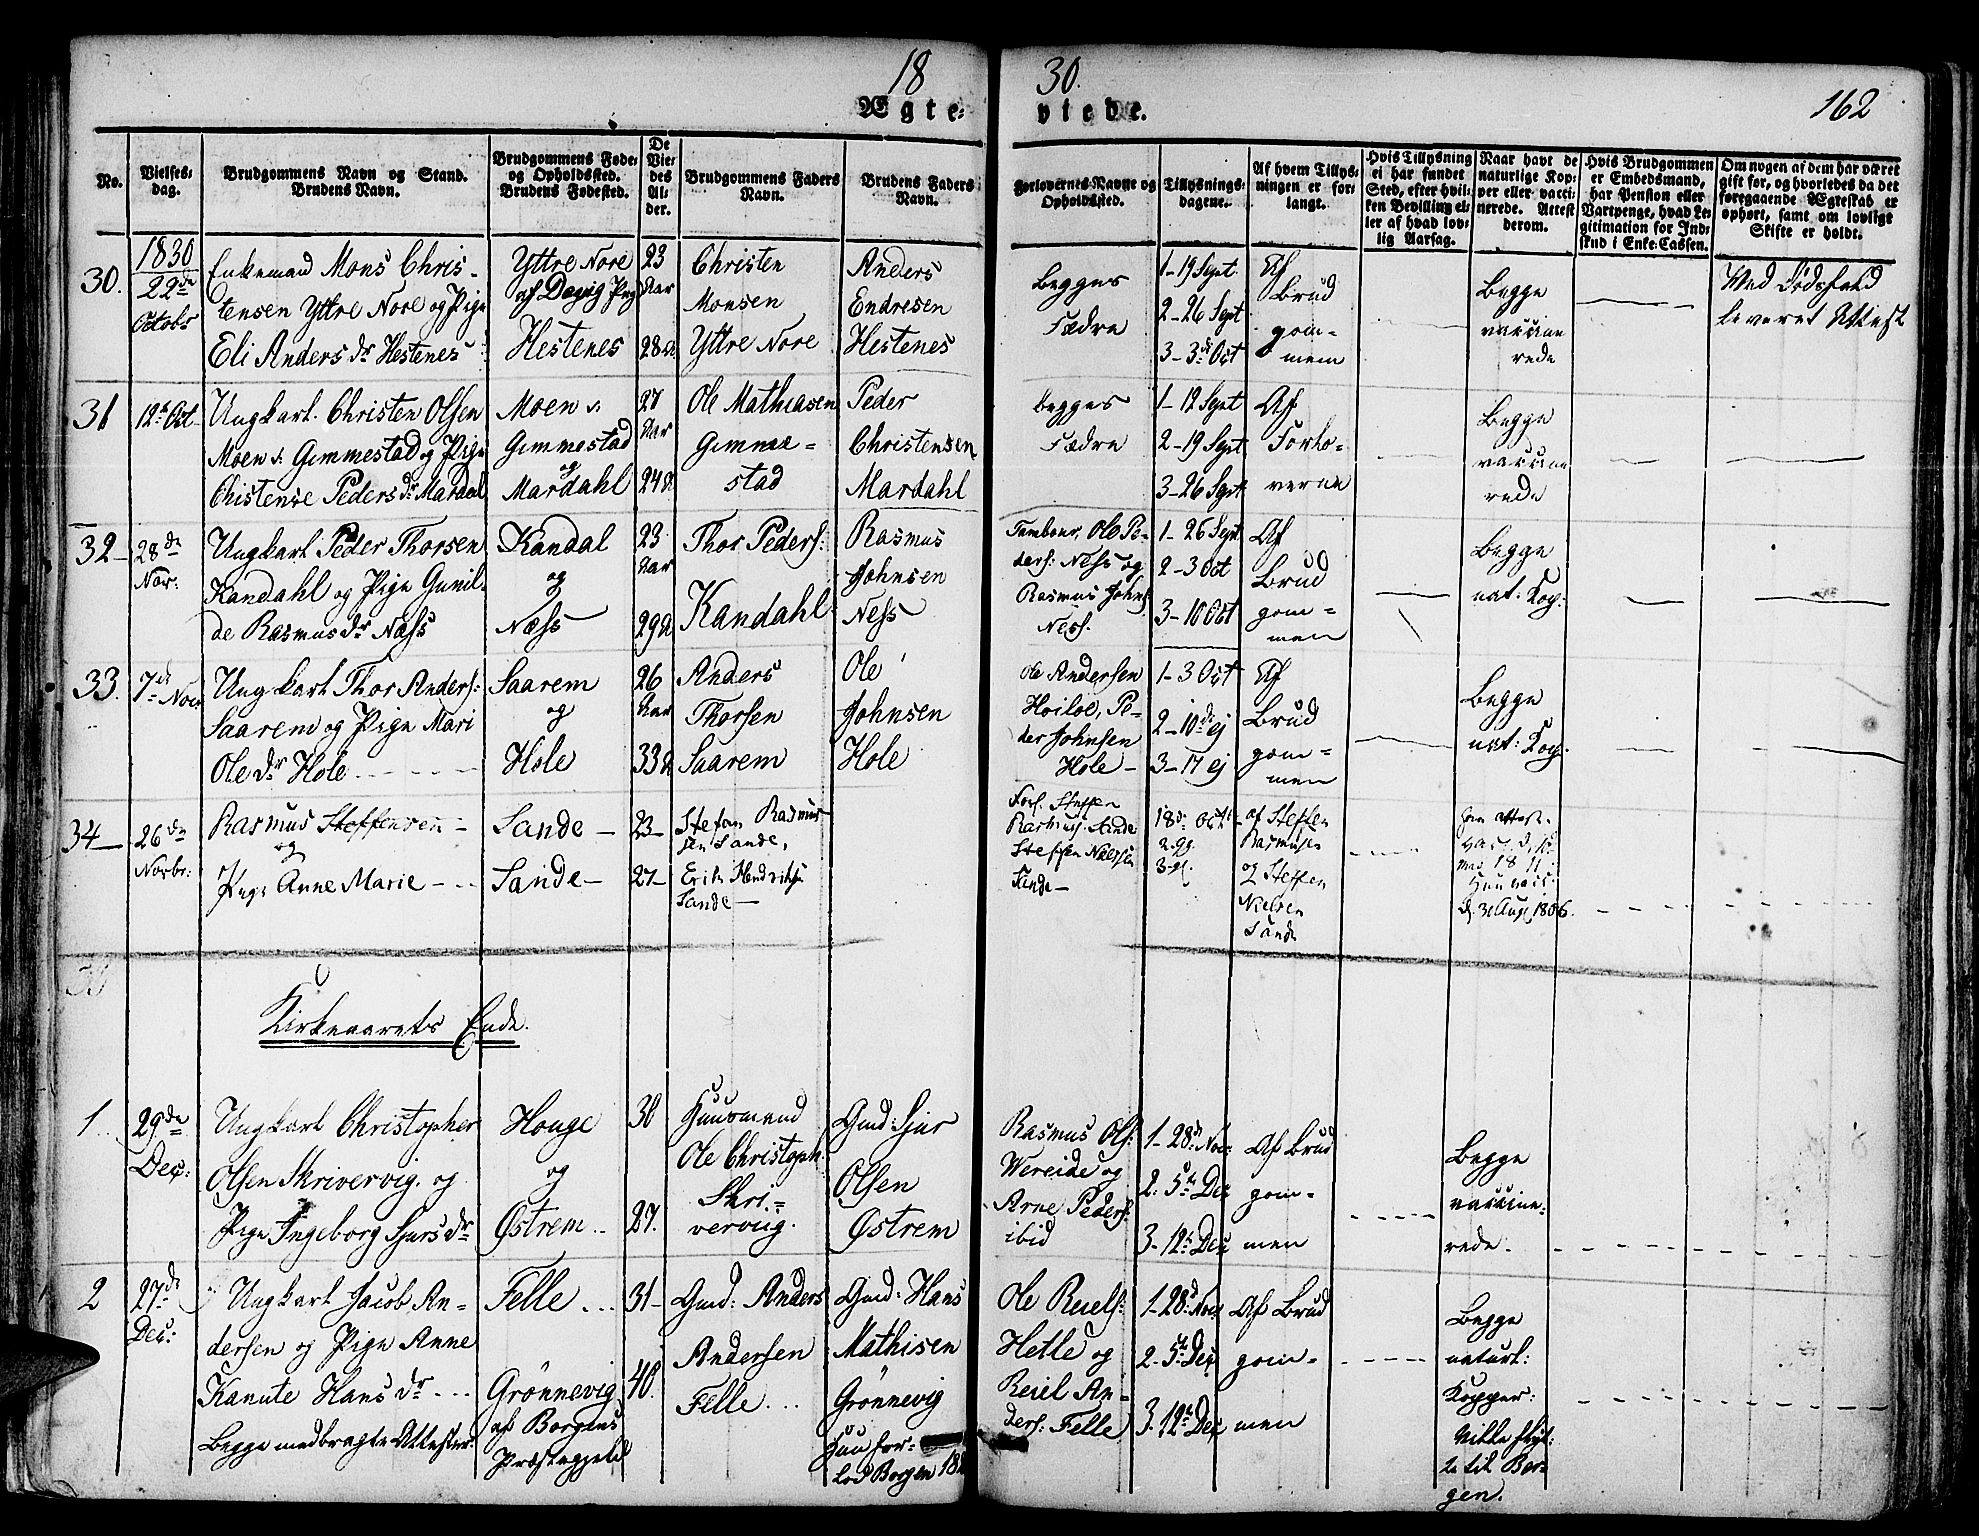 18 30.
162
Ægte- viede.
No.
Vielses-
dag.
Brudgommens Navn og Stand.
Brudens Navn.
Brudgommens Føde-
og Opholdssted.
Brudens Fødested.
De
Vie-
des
Al-
der.
Brudgommens Faders
Navn.
Brudens Faders
Navn.
Forlovernes Navne og
Opholdssted.
Tillysnings-
dagene.
Af hvem Tillys-
ningen er for-
langt.
Hvis Tillysning
ei har fundet
Sted, efter hvil-
ken Bevilling el-
ler af hvad lov-
lig Aarsag.
Naar havt de
naturlige Kop-
per eller vacci-
nerede. Attest
derom.
Hvis Brudgommen
er Embedsmand,
har Pension eller
Vartpenge, hvad Le-
gitimation for Ind-
skud i Enke-Cassen.
Om nogen af dem har været
gift for, og hvorledes da det
foregaaende Ægteskab er
ophørt, samt om lovligt
Skifte er holdt.
30.
1830
22de
Octobr
Enkemand Mons Chris-
tensen Yttre Nore og Pige
Eli Andersdr Hestenes
Yttre Nore
af Davig Pgj
Hestenes
23
Aar
28
Christen
Monsen
Yttre Nore
Anders
Endresen
Hestenes
Begges
Fædre
1-19 Sept
2-26 Sept
3-3de Oct
Af
Brud
gom-
mem
Begge
vaccine
rede
Ved Dødsfald
leveret Attest
31
12te Oct
Ungkarl. Christen Olsen
Moen v. Gimmestad og Pige
Chistense Pedersdr Mardal
Moen v.
Gimmestad
og
Mardahl
27
Aar
24 A
Ole Mathiasen
Gimme-
stad
Peder
Christensen
Mardahl
begges
Fædre
1-12 Sept
2-19 Sept
3-26 Sept
Af
Forlo-
verne
Begge
vaccine
rede
32
28de
Nov:
Ungkarl Peder Thorsen
Kandahl og Pige Gunil-
de Rasmusdr Næss
Kandal
og
Næss
23
Aar
29 A
Thor Peders:
Kandahl
Rasmus
Johnsen
Ness
Tambour Ole Pe-
ders: Ness og
Rasmus Johns
Ness.
1-26 Sept
2-3 Oct
3-10 Oct
Af
Brud
gom-
men
Begge
nat: Kop:
33.
7de Nov
Ungkarl Thor Anders:
Saarem og Pige Mari
Oledr Hole
Saarem
og
Hole
26
Aar
33 A
Anders
Thorsen
Saarem
Ole
Johnsen
Hole
Ole Andersen
Hoiloe, Pe-
der Johnsen
Hole
1-3 Oct
2-10de ej
3-17 ej
Af
Brud
gom-
men
Begge
nat: Kop.
34
26de
Novbr:
Rasmus Steffensen
og
Pige Anne Marie
Sande
Sande
23
27
Stefan Rasmus-
sen Sande,
Erik Hendriksen
Sande
Forl. Steffen
Rasmus. Sande
Steffen Nielsen
Sande
18de Oct
af Steffen
Rasmusen
og Steffen
Nielsen
Sande
d. 30 Aug 1806.
Kirkeaarets Ende.
1
29de
Dec:
Ungkarl Christopher
Olsen Skrivervig. og
Pige Ingeborg Sjursdr
Houge
og
Østrem
30
27.
Huusmand
Ole Christoph:
Skri-
vervug.
Gmd: Sjur
Olsen
Østrem
Rasmus Ols:
Wereide og
Arne Peders:
ibid
1-28de Nov:
2. 5te Dec
3-12te Dec
Af Brud
gom-
men
Begge
vaccine-
rede.
2
27de
Dec:
Ungkarl Jacob An-
dersen og Pige Anne
Kanute Hansdr
Begge medbragte Attester
Felle
Grønnevig
af Borgens
Præstegjeld
31
40.
Gmd: Anders
Andersen
Felle
Gmd: Hans
Mathisen
Grønnevig
Hun for-
lod Borgen 18
Ole Reiels:
Hetle og
Reiel An-
ders: Felle
1-28de Nov
2-5te Dec
3-12te Dec
Af Brud
gom-
men
Begge
naturl:
Kopper:
Ville flyt:
te til Ber-
gen.